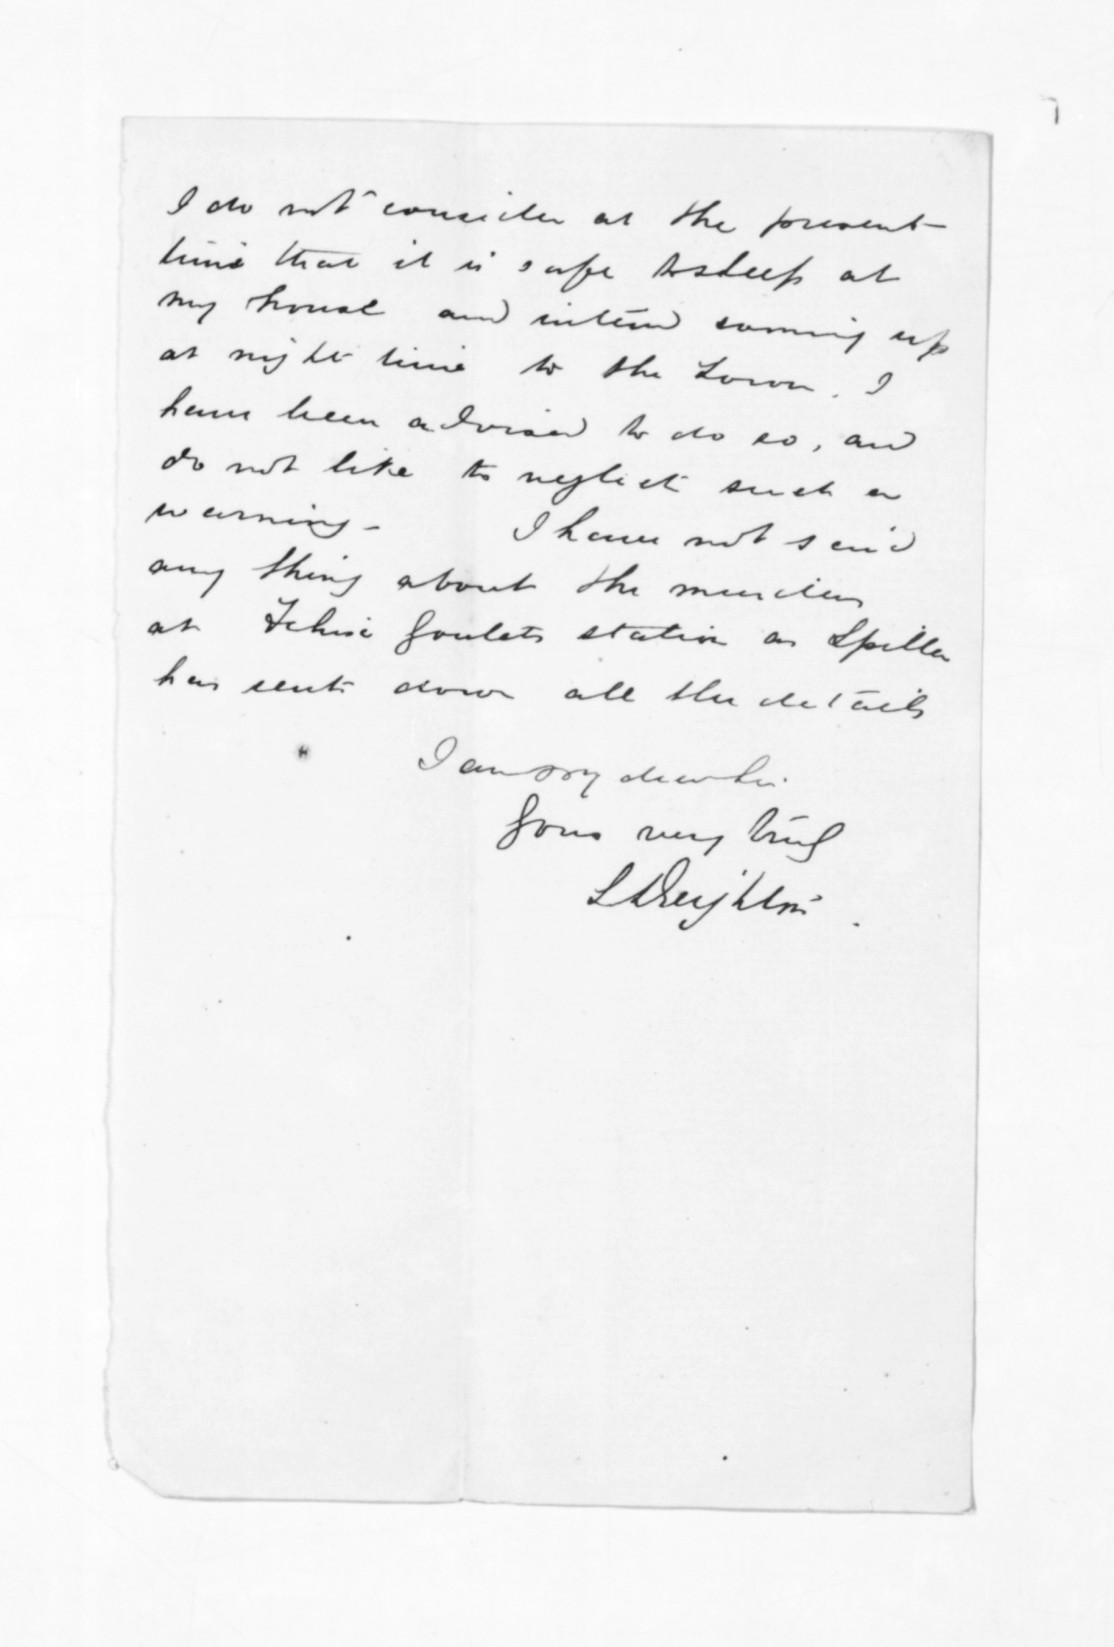 I do not consider at the present
time that it is safe to sleep at
my house and intend coming up
at night time to the Town. I
have been advised to do so, and
do not like to neglect such a
warning - I have not said
any thing about the murders
at station as Spiller
has sent down all the details
I am my dear Sir
Yours very truly
S Deighton